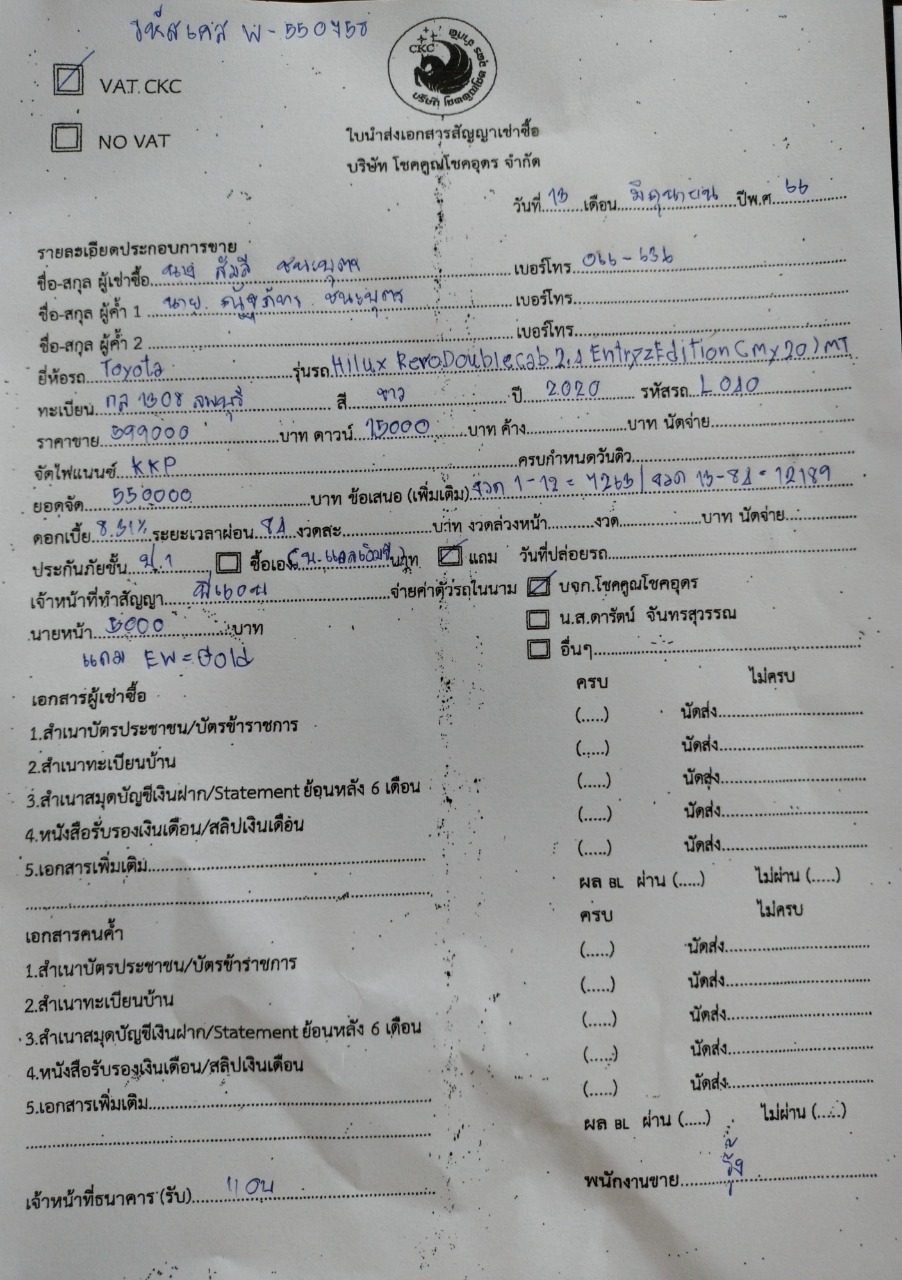 รหัสเคส W-550758
VAT. CKC
CKC
NO VAT
ใบนำส่งเอกสารสัญญาเช่าซื้อ
บริษัท โชคคูณโชคอุดร จำกัด
วันที่ 13 เดือน มิถุนายน ปีพ.ศ. 66
รายละเอียดประกอบการขาย
ชื่อ-สกุล ผู้เช่าซื้อ นาง เบอร์โทร 066-636
ชื่อ-สกุล ผู้ค้ำ 1 นาย เบอร์โทร
ชื่อ-สกุล ผู้ค้ำ 2 เบอร์โทร
ยี่ห้อรถ Toyota รุ่นรถ Hilux Revo Double Cab 2.4 Entry zEdition (My20) MT
ทะเบียน กล 1308 ลพบุรี สี ขาว ปี 2020 รหัสรถ L 040
ราคาขาย 599000 บาท ดาวน์ 15000 บาท ค้าง บาท นัดจ่าย
จัดไฟแนนซ์ KKP ครบกำหนดวันดิว
ยอดจัด 550000 บาท ข้อเสนอ (เพิ่มเติม) งวด 1-12 = 7263 / งวด 13-84 = 12189
ดอกเบี้ย 8.31% ระยะเวลาผ่อน 84 งวดละ บาท งวดล่วงหน้า งวด บาท นัดจ่าย
ประกันภัยชั้น ป.1 ซื้อเอง แถม วันที่ปล่อยรถ
เจ้าหน้าที่ทำสัญญา จ่ายค่าตัวรถในนาม บจก.โชคคูณโชคอุดร
น.ส.ดารัตน์ จันทรสุวรรณ
นายหน้า 5000 บาท
อื่นๆ
แถม EW = Gold
เอกสารผู้เช่าซื้อ ครบ ไม่ครบ
1.สำเนาบัตรประชาชน/บัตรข้าราชการ (.....) นัดส่ง
2.สำเนาทะเบียนบ้าน (.....) นัดส่ง
3.สำเนาสมุดบัญชีเงินฝาก/Statement ย้อนหลัง 6 เดือน (.....) นัดส่ง
4.หนังสือรับรองเงินเดือน/สลิปเงินเดือน (.....) นัดส่ง
5.เอกสารเพิ่มเติม (.....) นัดส่ง
ผล BL ผ่าน (.....) ไม่ผ่าน (.....)
เอกสารคนค้ำ ครบ ไม่ครบ
1.สำเนาบัตรประชาชน/บัตรข้าราชการ (.....) นัดส่ง
2.สำเนาทะเบียนบ้าน (.....) นัดส่ง
3.สำเนาสมุดบัญชีเงินฝาก/Statement ย้อนหลัง 6 เดือน (.....) นัดส่ง
4.หนังสือรับรองเงินเดือน/สลิปเงินเดือน (.....) นัดส่ง
5.เอกสารเพิ่มเติม (.....) นัดส่ง
ผล BL ผ่าน (.....) ไม่ผ่าน (.....)
เจ้าหน้าที่ธนาคาร (รับ) พนักงานขาย